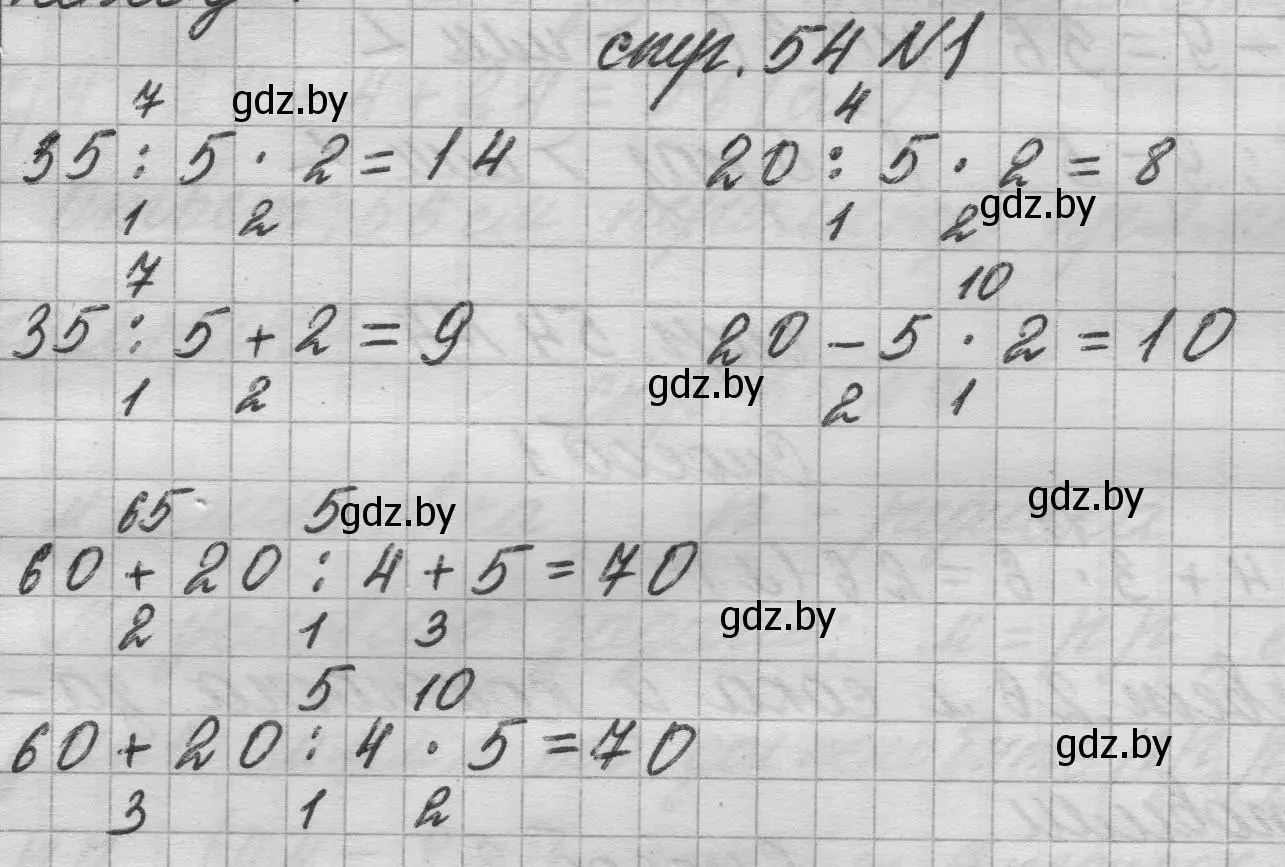 стр. 54 №1
7 4
35 : 5 · 2 = 14 20 : 5 · 2 = 8
1 2 1 2
7 10
35 : 5 + 2 = 9 20 - 5 · 2 = 10
1 2 2 1
65 5
60 + 20 : 4 + 5 = 70
2 1 3
5 10
60 + 20 : 4 · 5 = 70
3 1 2
gdz.by
gdz.by
gdz.by
gdz.by
gdz.by
gdz.by
gdz.by